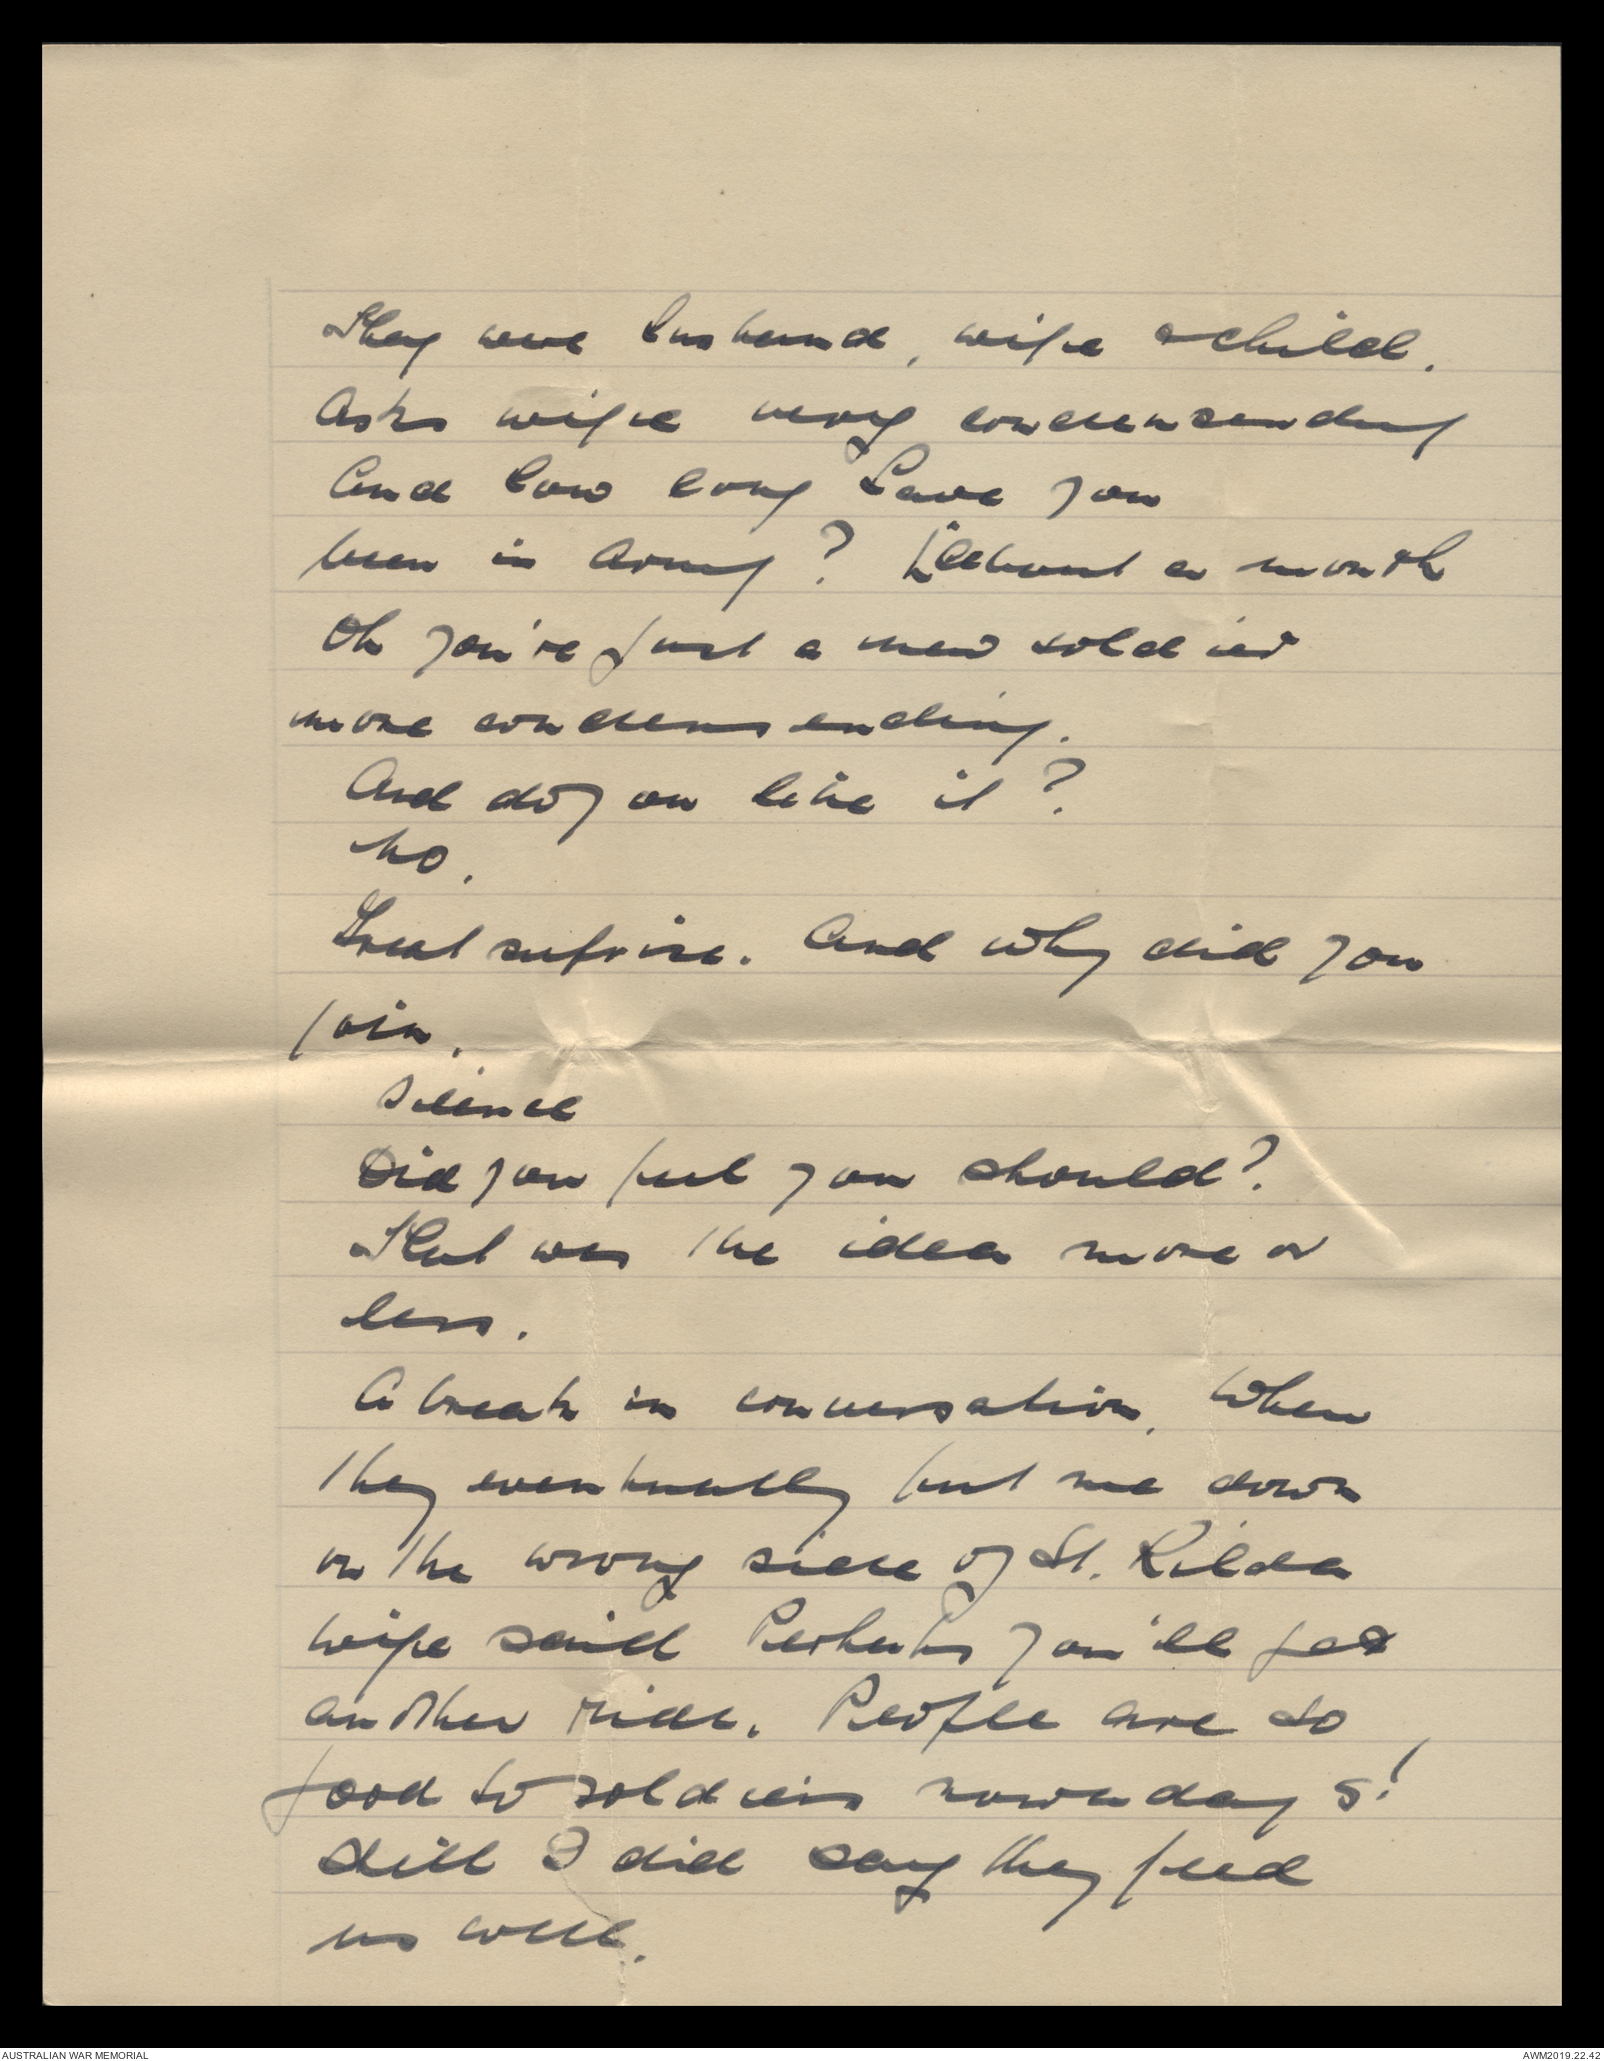 They were husband, wife & child.
Asks wife very condensending
And how long have you
been in Army? About a month
Oh you're just a new soldier
more condensending.
And do you like it?
No.
Great suprise. And why did you
join.
Silence
Did you feel you should?
That was the idea more or
less.
A break in conversation. When
they eventually put me down
on the wrong side of St. Kilda
wife said Perhaps you'll get
another ride. People are so
good to soldiers nowadays!
Still I did say they feed
us well.
AUSTRALIAN WAR MEMORIAL
AWM2019.22.42